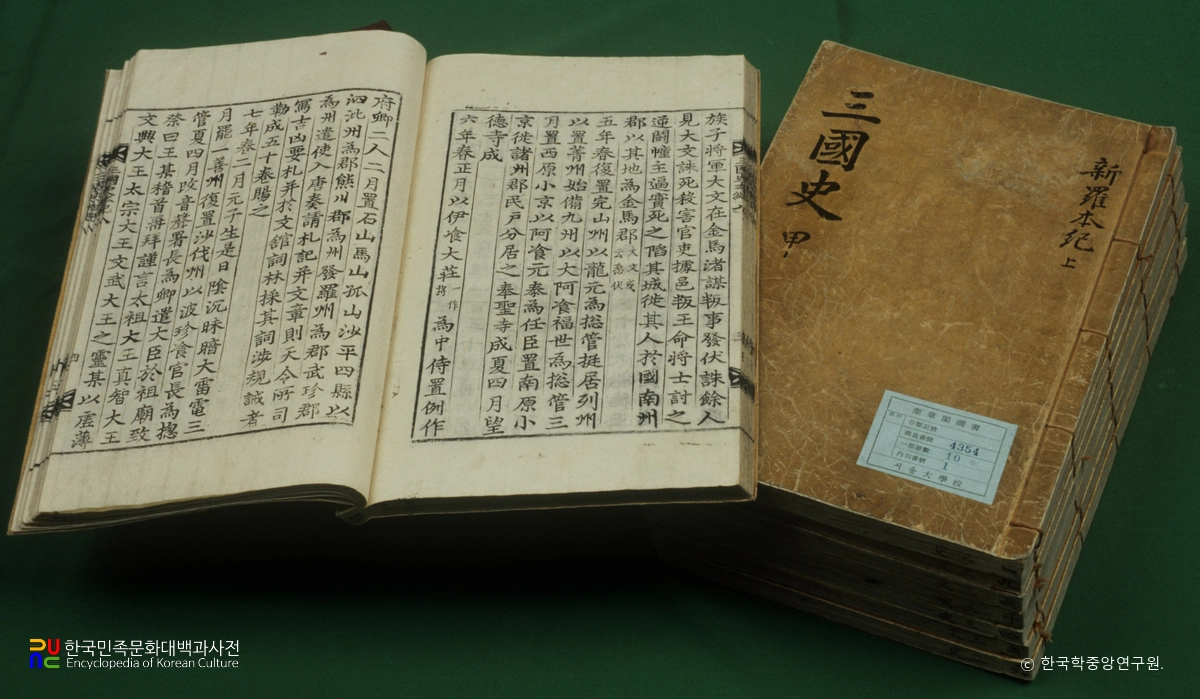 族子將軍大文在金馬渚謀叛事發伏誅餘人
見大文誅死殺害官吏據邑叛王命將士討之
逆鬪幢主逼實死之陷其城徙其人於國南州
郡以其地為金馬郡大文或云悉伏
五年春復置完山州以龍元為摠管挺居列州
以置菁州始備九州以大阿飡福世為摠管三
月置西原小京以阿飡元泰為任臣置南原小
京徙諸州郡民戶分居之奉聖寺成夏四月望
德寺成
六年春正月以伊飡大莊一作將為中侍置例作
府卿二人二月置石山馬山孤山沙平四縣以
泗沘州為郡熊川郡為州發羅州為郡武珍郡
為州遣使入唐奏請札記并文章則天令所司
寫吉凶要札并於文舘詞林採其詞涉規誡者
勒成五十卷賜之
七年春二月元子生是日陰沉昧暗大雷電三
月罷一善州復置沙伐州以波珍飡官長為摠
管夏四月改音聲署長為卿遣大臣於祖廟致
祭曰王某稽首再拜謹言太祖大王真智大王
文興大王太宗大王文武大王之靈某以虛薄
三國史 甲
新羅本紀 上
奎章閣圖書
分類記號
圖書番號 4354
一部冊數 10
1
서울大學校
한국민족문화대백과사전
Encyclopedia of Korean Culture
© 한국학중앙연구원.